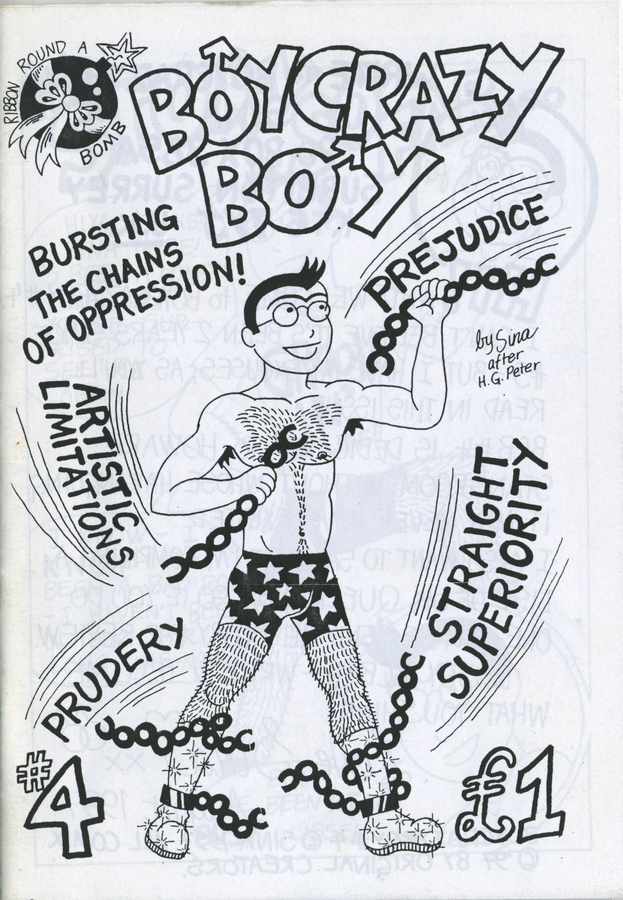 RIBBON ROUND A
BOMB
BOYCRAZY
BOY
BURSTING
THE CHAINS
OF OPPRESSION!
PREJUDICE
by Sina
after
H.G. Peter
ARTISTIC
LIMITATIONS
STRAIGHT
SUPERIORITY
PRUDERY
#4
£1